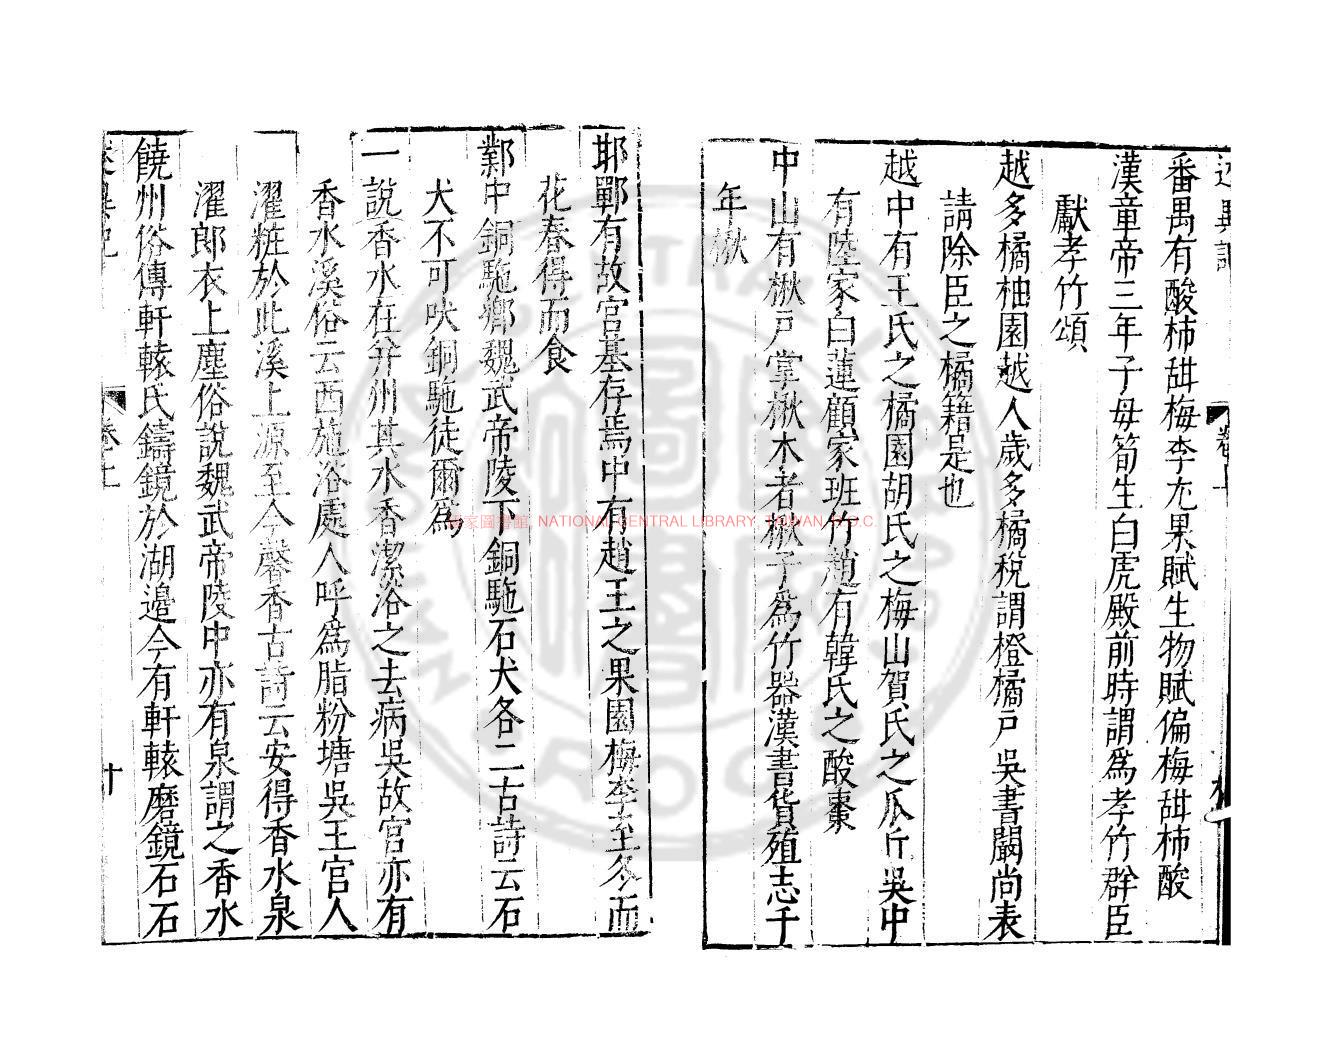 番禺有酸柿甜梅李尤果賦生物賦偏梅甜柿酸
漢章帝三年子母筍生白虎殿前時謂為孝竹群臣
獻孝竹頌
越多橘柚園越人歲多橘稅謂橙橘戶吳書闞尚表
請除臣之橘籍是也
越中有王氏之橘園胡氏之梅山賀氏之瓜丘吳中
有陸家白蓮顧家班竹趙有韓氏之酸棗
中山有楸戶掌楸木者楸子為竹器漢書貨殖志千
年楸
邯鄲有故宮基存焉中有趙王之果園梅李至冬而
花春得而食
鄴中銅駞鄉魏武帝陵下銅駞石犬各二古詩云石
犬不可吠銅駞徒爾為
一說香水在并州其水香潔浴之去病吳故宮亦有
香水溪俗云西施浴處人呼為脂粉塘吳王宮人
濯粧於此溪上源至今馨香古詩云安得香水泉
濯郎衣上塵俗說魏武帝陵中亦有泉謂之香水
饒州俗傳軒轅氏鑄鏡於湖邊今有軒轅磨鏡石石
卷上
十
國家圖書館 NATIONAL CENTRAL LIBRARY, TAIWAN, R.O.C.